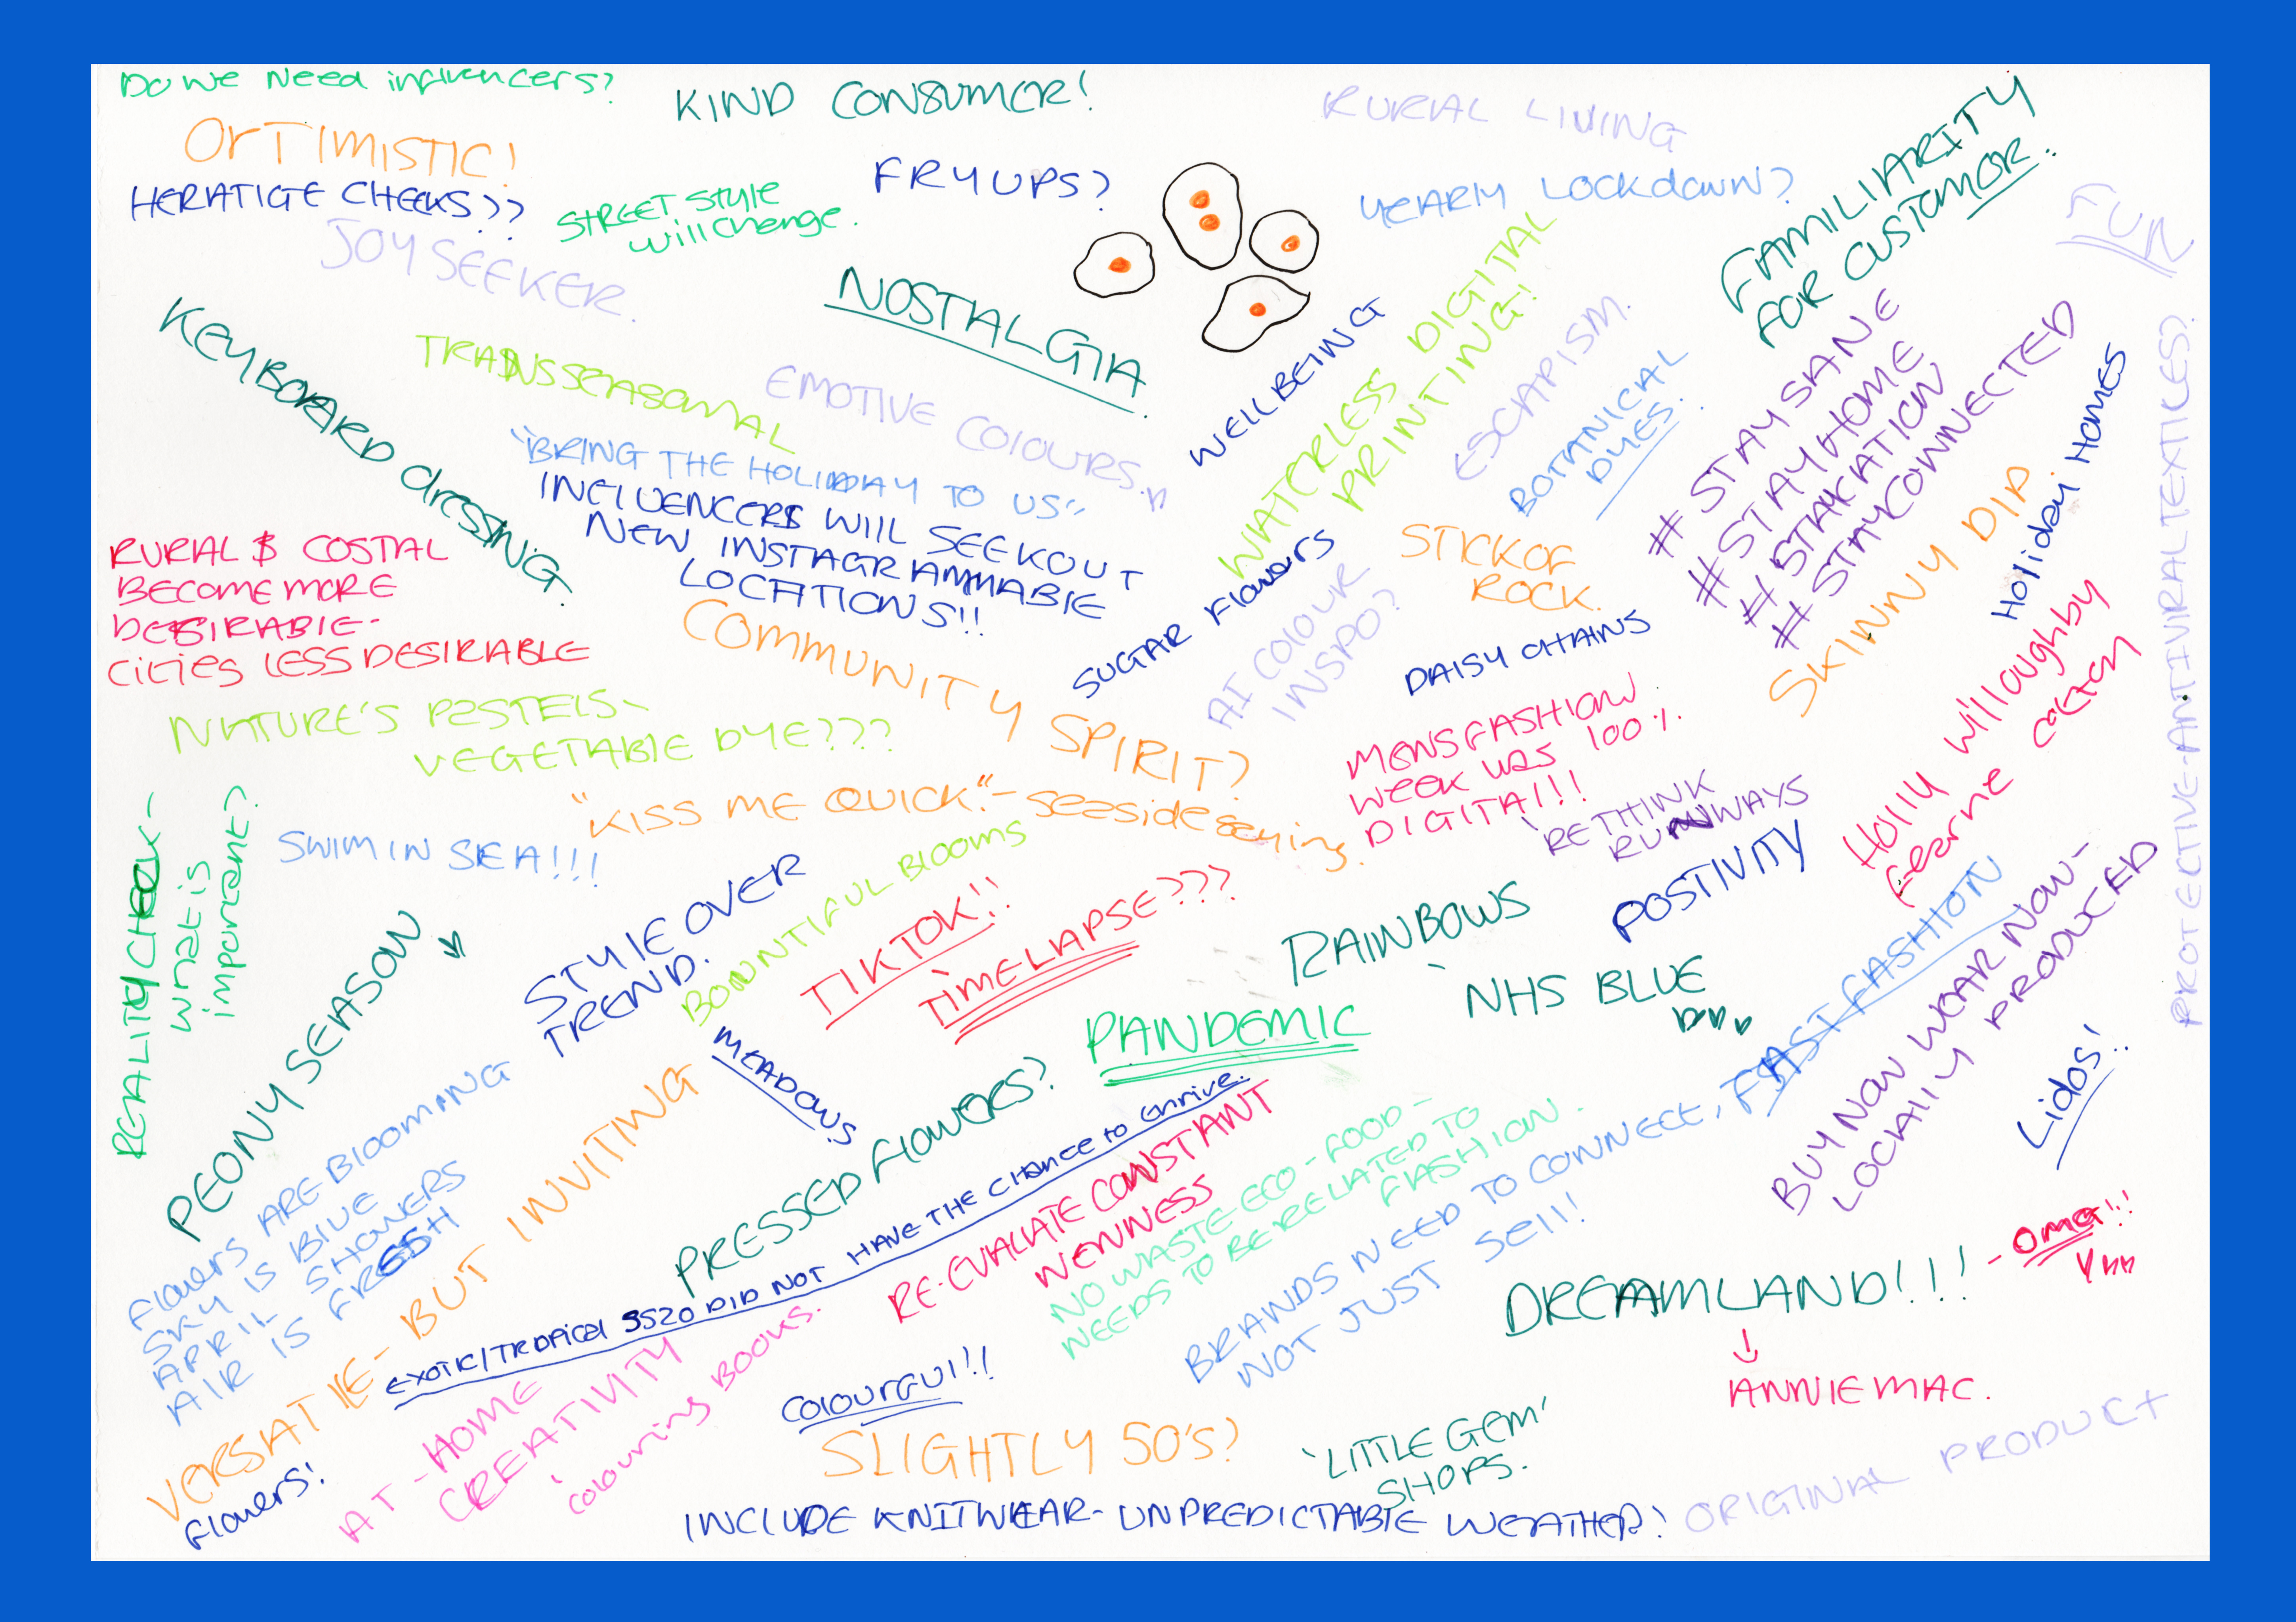 DO WE NEED influencers?
KIND CONSUMER!
RURAL LIVING
OPTIMISTIC!
HERATIGE CHECKS??
STREET STYLE
will change.
FRY UPS?
YEARLY LOCKdown?
FAMILIARITY
FOR CUSTOMOR.
FUN
JOY SEEKER.
NOSTALGIA.
KEYBOARD dressing.
TRANSSEASONAL
EMOTIVE COLOURS.
WELLBEING
WATERLESS DIGITAL
PRINTING!
ESCAPISM.
BOTANICAL
DYES.
# STAY SANE
# STAY HOME
# STAYCATION
# STAY CONNECTED
Holiday Homes
PROTECTIVE-ANTIVIRAL TEXTILES?
"BRING THE HOLIDAY TO US"
INFLUENCERS WILL SEEK OUT
NEW INSTAGRAMMABLE
LOCATIONS!!
RURAL & COSTAL
BECOME MORE
DESIRABLE-
Cities LESS DESIRABLE
COMMUNITY SPIRIT?
SUGAR Flowers
AI COLOUR
INSPO?
STICK OF
ROCK.
DAISY CHAINS
SKINNY DIP
Holly willoughby
Fearne cotton
NATURE'S PASTELS-
VEGETABLE DYE???
MENS FASHION
week was 100%
DIGITAL!!
'RETHINK
RUNWAYS
"KISS ME QUICK"- seaside saying.
REALITY CHECK-
what is
important?
SWIM IN SEA!!!
PEONY SEASON
STYLE OVER
TREND.
BOUNTIFUL BLOOMS
TIKTOK!!
TIMELAPSE???
RAINBOWS
POSTIVITY
NHS BLUE
PANDEMIC
MEADOWS
PRESSED FLOWERS?
BUY NOW WEAR NOW-
LOCALLY PRODUCED
Lidos!!
Flowers ARE BLOOMING
SKY IS BLUE
APRIL SHOWERS
AIR IS FRESH
VERSATILE- BUT INVITING
EXOTIC/TROPICAL SS20 DID NOT HAVE THE CHANCE to thrive.
RE-EVALUATE CONSTANT
NEWNESS
NO WASTE ECO-FOOD-
NEEDS TO BE RELATED TO
FASHION.
BRANDS NEED TO CONNECT, FAST FASHION
NOT JUST SELL!
DREAMLAND!!! - OMG!!!
ANNIE MAC.
Flowers!
AT-HOME
CREATIVITY
colouring BOOKS.
COLOURFUL!!
SLIGHTLY 50'S?
'LITTLE GEM'
SHOPS.
INCLUDE KNITWEAR- UNPREDICTABLE WEATHER?
ORIGINAL PRODUCT